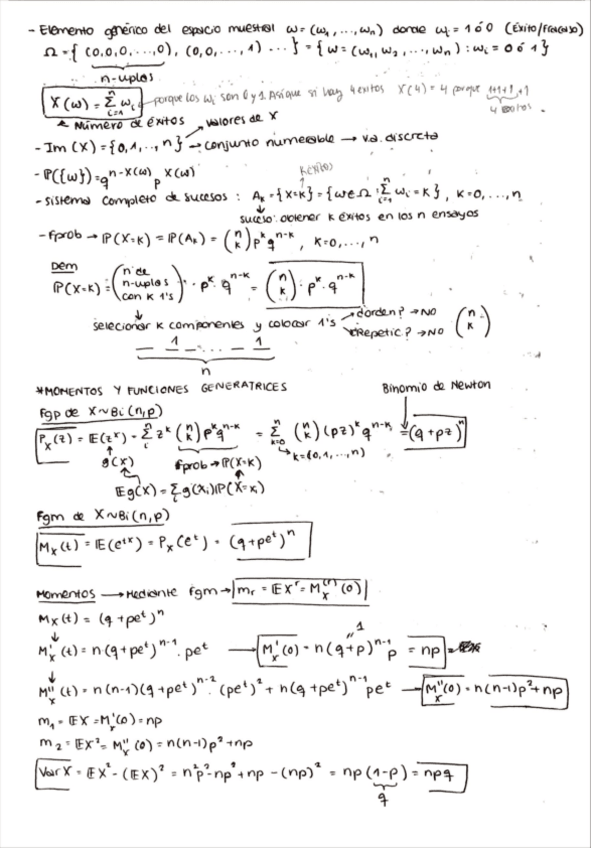 - Elemento genérico del espacio muestral ω = (ω₁, ..., ωₙ) donde ωᵢ = 1 ó 0 (Éxito/Fracaso)
Ω = { (0,0,0,...,0), (0,0,...,1) ... } = { ω = (ω₁, ω₂, ..., ωₙ) : ωᵢ = 0 ó 1 }
n-uplas
X(ω) = Σᵢ₌₁ⁿ ωᵢ porque los ωᵢ son 0 y 1. Así que si hay 4 exitos X(4) = 4 porque 1+1+1+1
4 exitos
Número de éxitos
valores de X
- Im (X) = {0, 1, ..., n} → conjunto numerable → v.a. discreta
- ℙ({ω}) = q^(n-X(ω)) p^X(ω)
K éxitos
- Sistema completo de sucesos : Aₖ = {X=K} = {ω∈Ω : Σᵢ₌₁ⁿ ωᵢ = K}, K=0, ..., n
suceso: obtener K éxitos en los n ensayos
- fprob → ℙ(X=K) = ℙ(Aₖ) = (n K) p^K q^(n-K), K=0, ..., n
Dem
ℙ(X=K) = (nº de n-uplas con K 1's) · p^K · q^(n-K) = (n K) · p^K · q^(n-K)
seleccionar K componentes y colocar 1's
¿orden? → NO
¿Repetic? → NO
(n K)
_ 1 _ ... _ 1
n
*MOMENTOS Y FUNCIONES GENERATRICES
Binomio de Newton
Fgp de X∼Bi(n,p)
Pₓ(z) = 𝔼(z^X) = Σ z^K (n K) p^K q^(n-K) = Σₖ₌₀ⁿ (n K) (pz)^K q^(n-K) = (q+pz)ⁿ
g(X)
fprob → ℙ(X=K)
K={0,1,...,n}
𝔼g(X) = Σ g(xᵢ)ℙ(X=xᵢ)
Fgm de X∼Bi(n,p)
Mₓ(t) = 𝔼(e^(tX)) = Pₓ(e^t) = (q+pe^t)ⁿ
Momentos → Mediante fgm → mᵣ = 𝔼X^r = Mₓ^(r)(0)
Mₓ(t) = (q+pe^t)ⁿ
Mₓ'(t) = n(q+pe^t)^(n-1) · pe^t → Mₓ'(0) = n(q+p)^(n-1) p = np
1
Mₓ''(t) = n(n-1)(q+pe^t)^(n-2) · (pe^t)² + n(q+pe^t)^(n-1) pe^t → Mₓ''(0) = n(n-1)p² + np
m₁ = 𝔼X = Mₓ'(0) = np
m₂ = 𝔼X² = Mₓ''(0) = n(n-1)p² + np
Var X = 𝔼X² - (𝔼X)² = n²p² - np² + np - (np)² = np(1-p) = npq
q